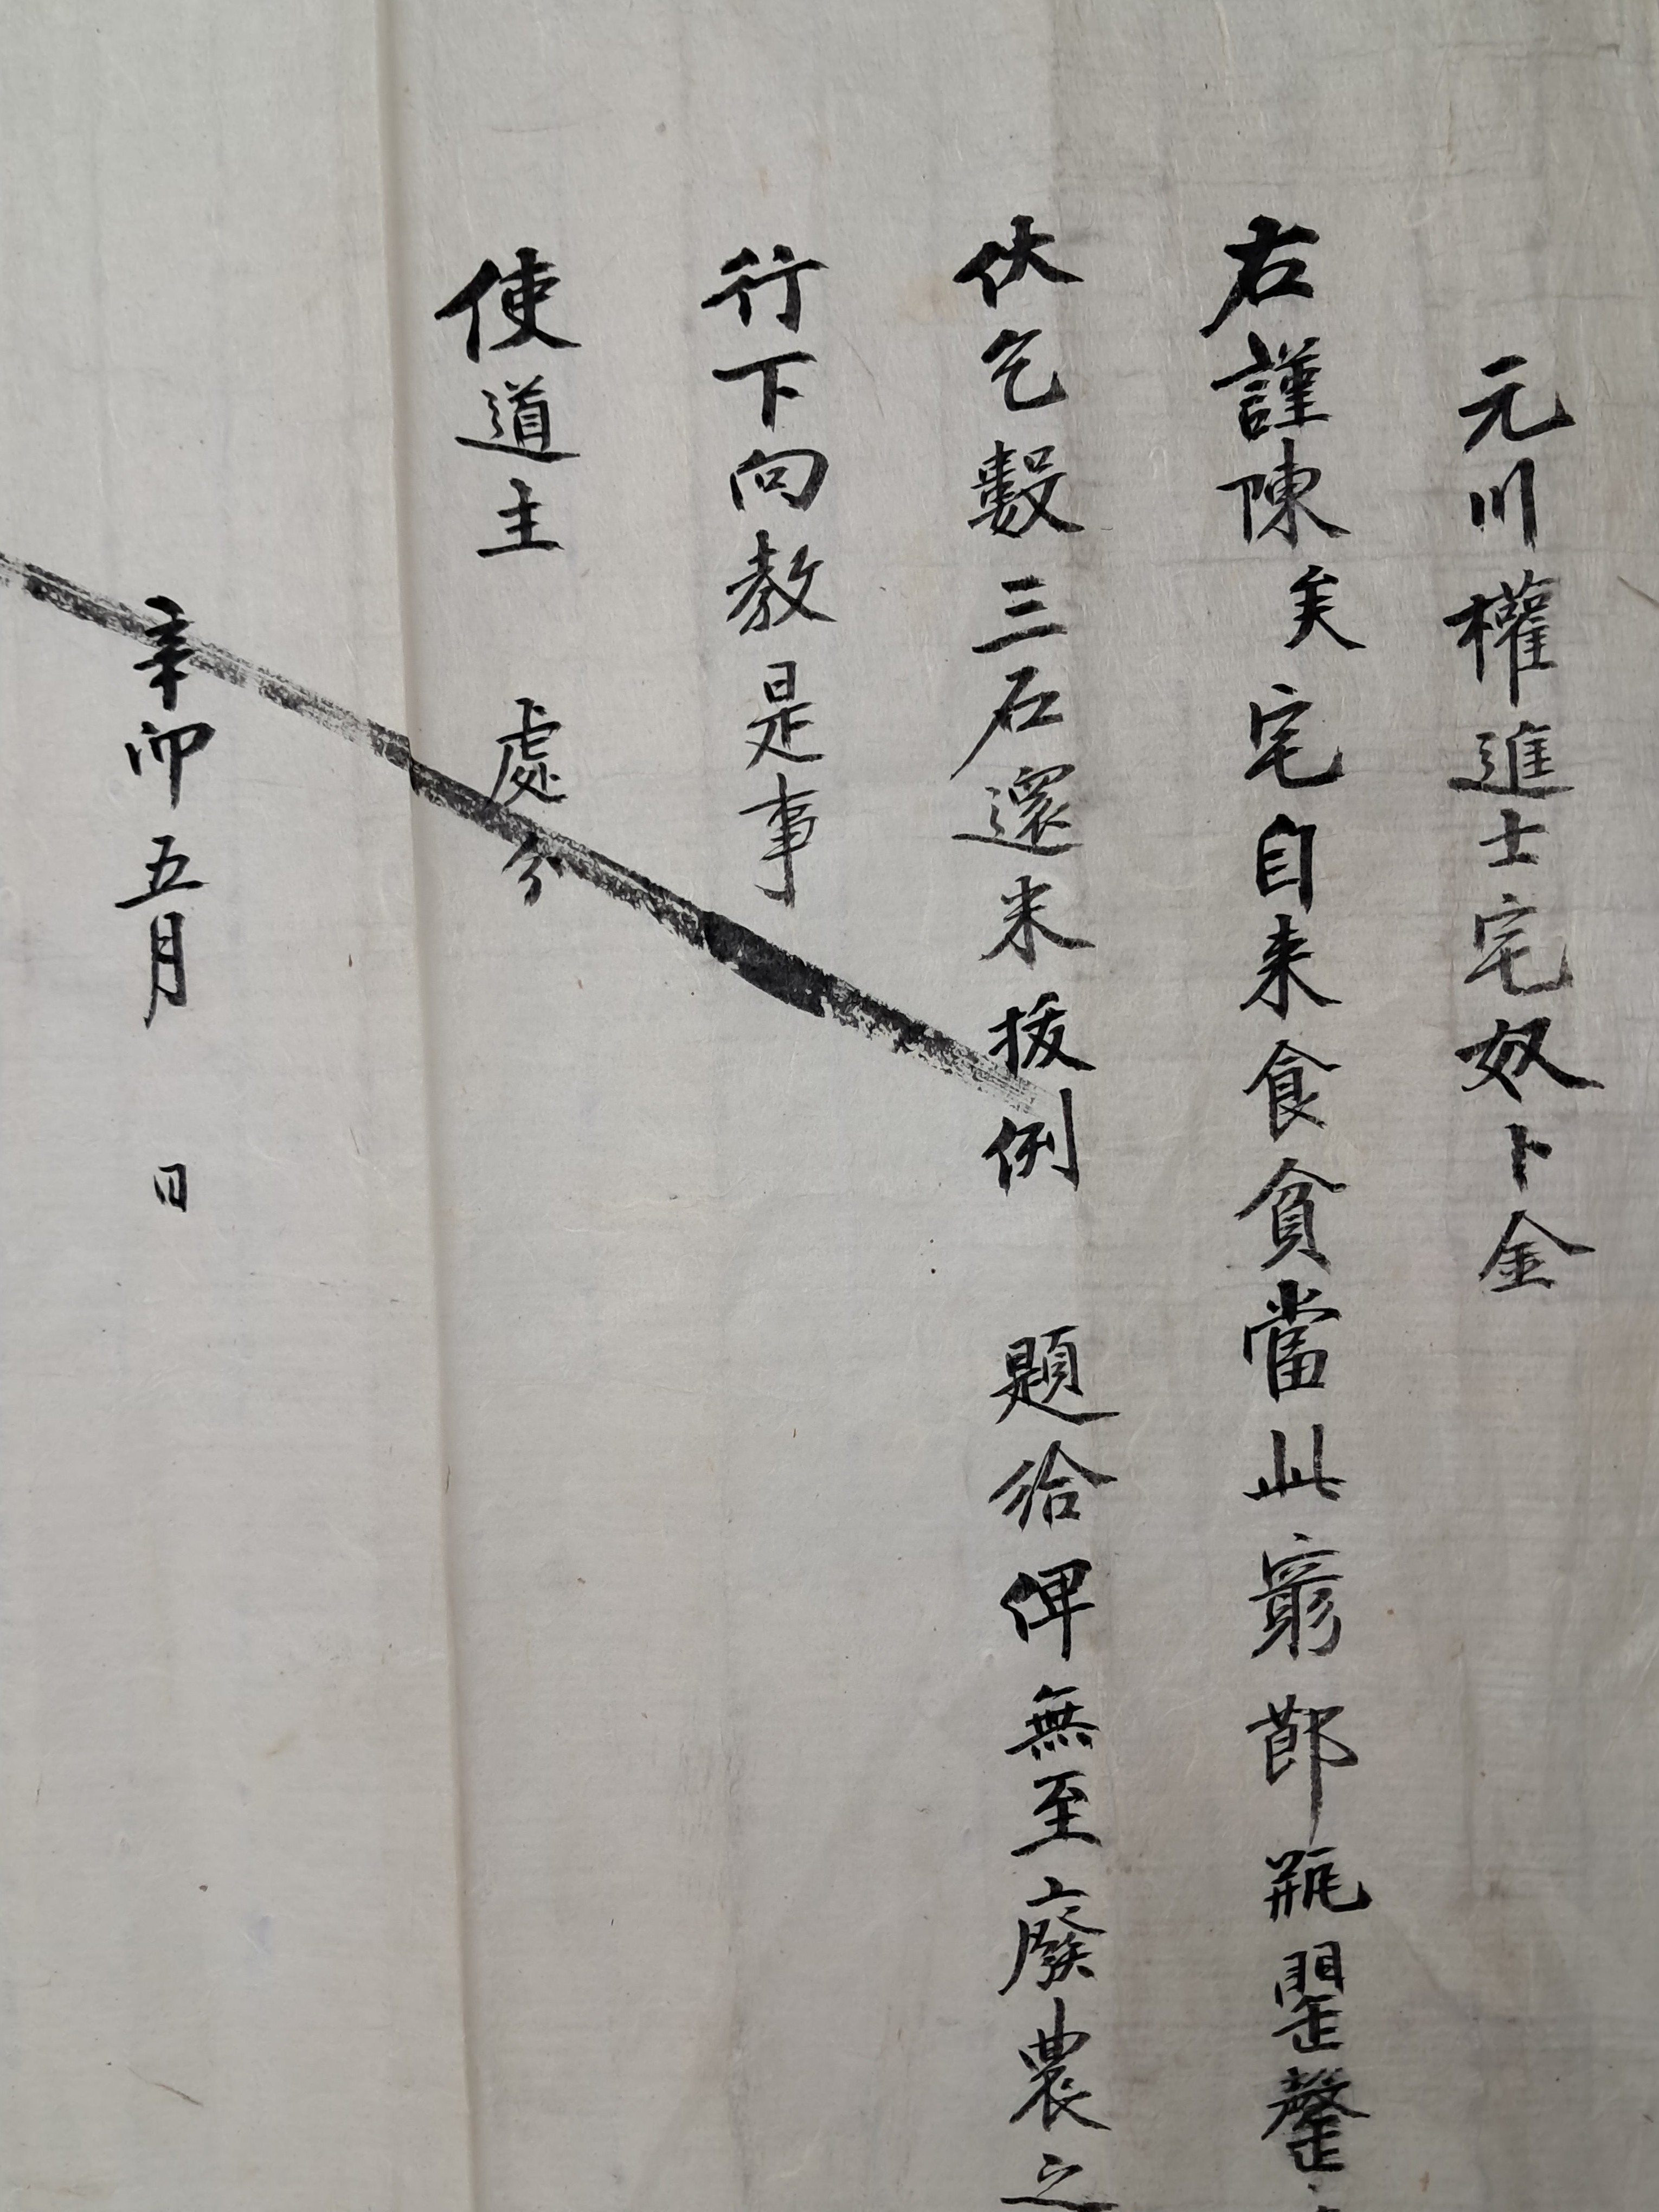 元川權進士宅奴卜金
右謹陳矣宅自来食貧當此窮節瓶罌罄
伏乞數三石還米拔例 題給俾無至廢農之
行下向敎是事
使道主 處分
辛卯五月 日